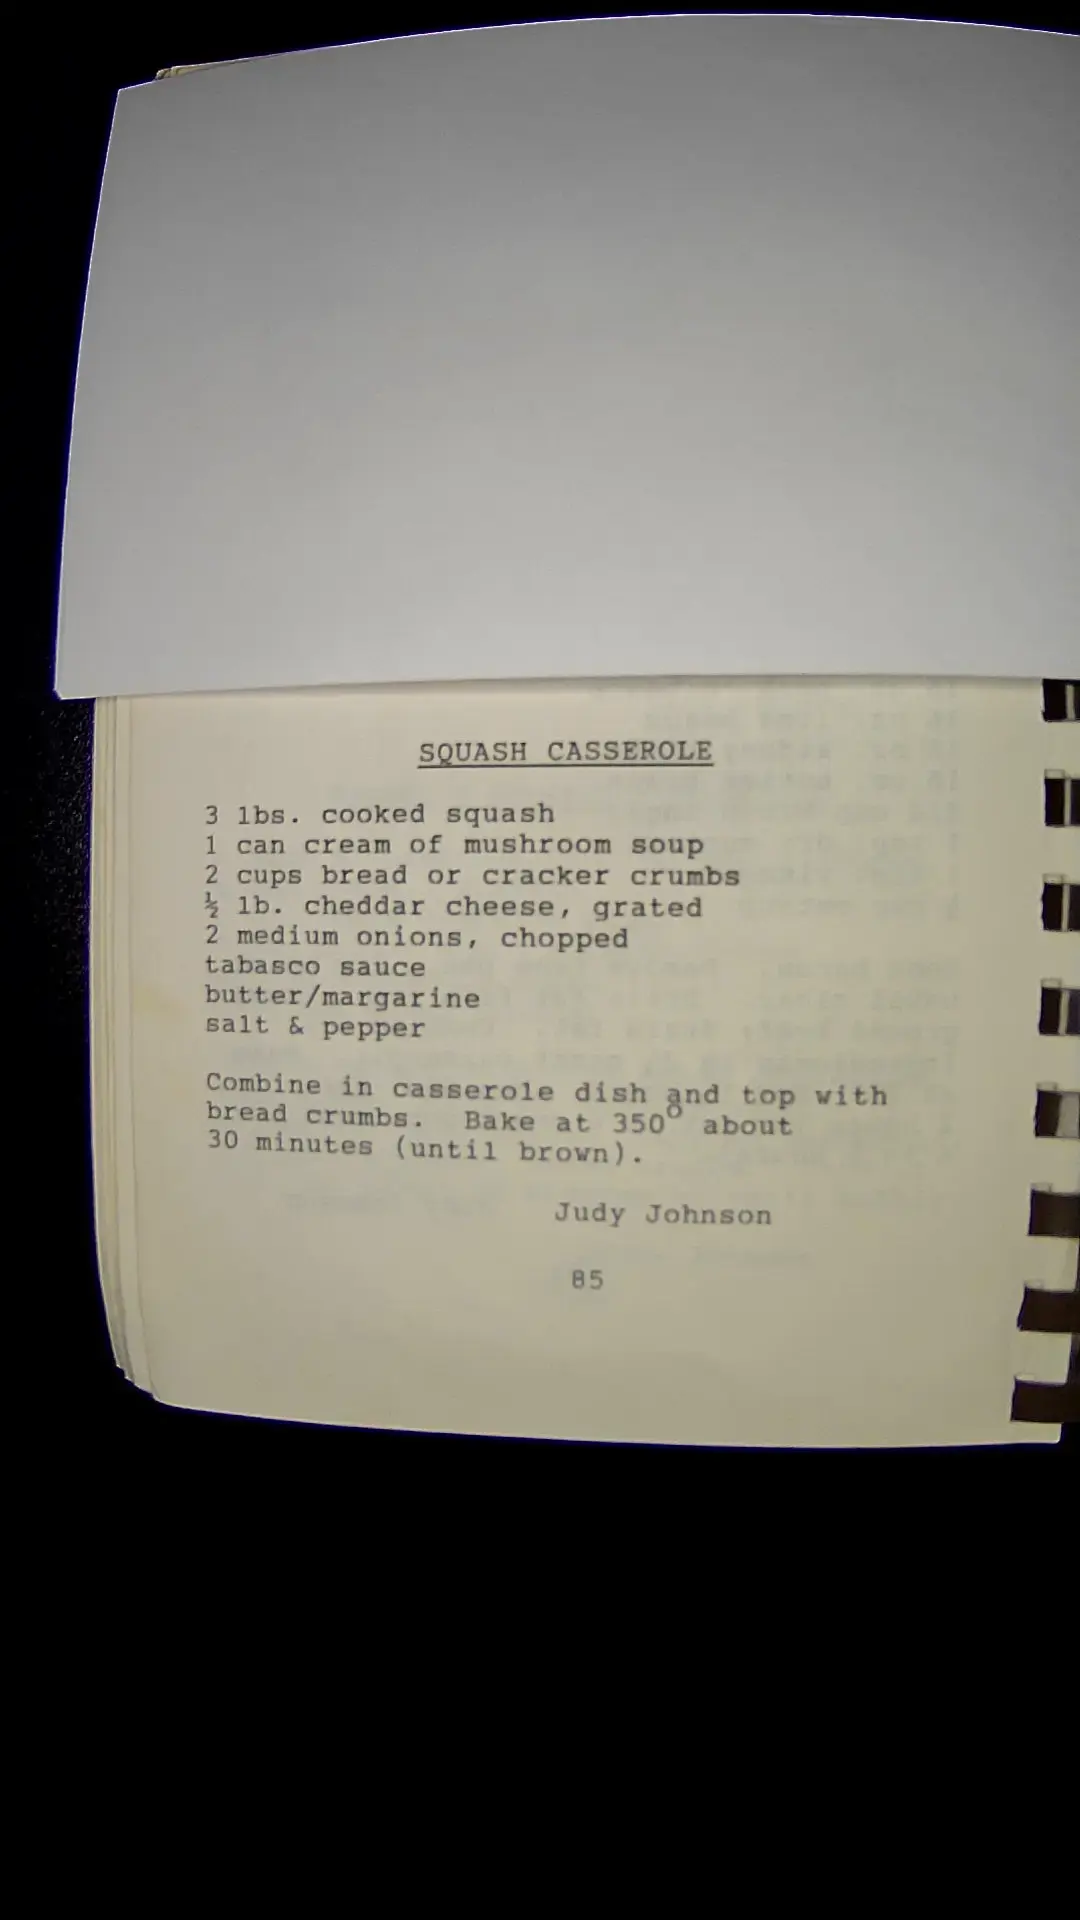 SQUASH CASSEROLE
3 lbs. cooked squash
1 can cream of mushroom soup
2 cups bread or cracker crumbs
½ lb. cheddar cheese, grated
2 medium onions, chopped
tabasco sauce
butter/margarine
salt & pepper
Combine in casserole dish and top with
bread crumbs.  Bake at 350° about
30 minutes (until brown).
Judy Johnson
85